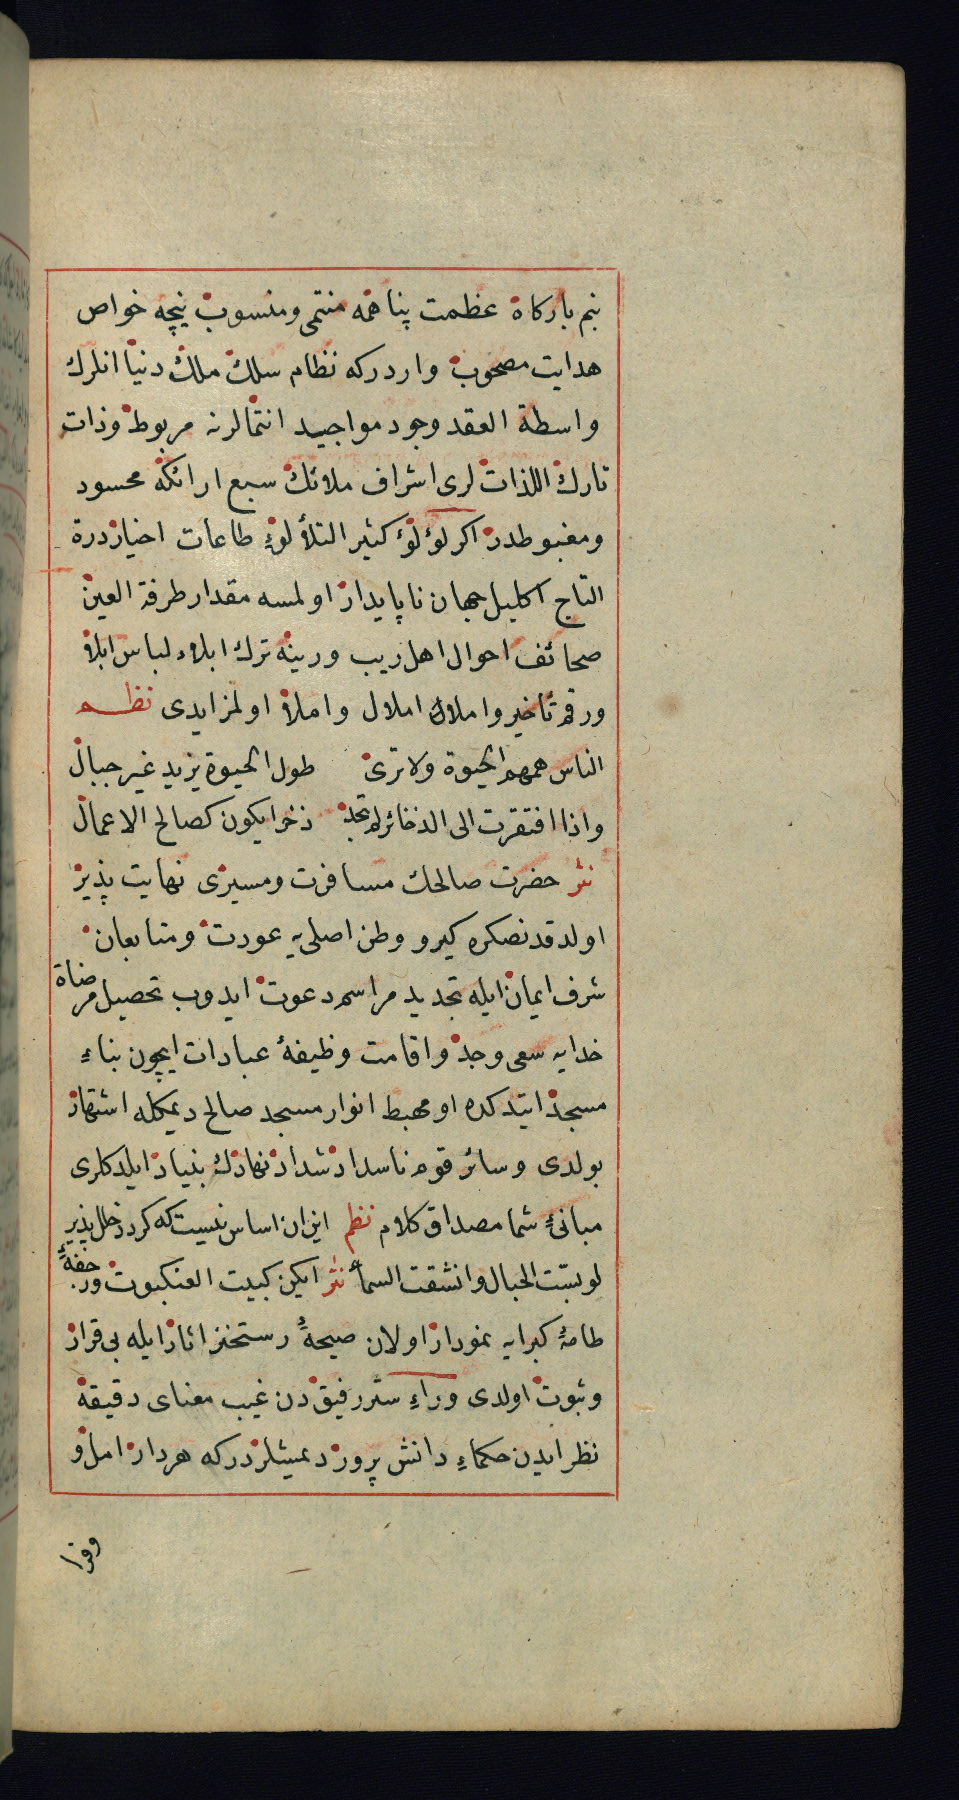 بنم بارکاه عظمت پناهمه منتمی و منسوب نیچه خواص
هدایت مصحوب واردرکه نظام سلك ملك دنیا انلرك
واسطة العقد وجود مواجید انتمالرنه مربوط وذات
تارك اللذات لری اشراف ملائك سبع ارائکه محسود
ومغبوطدر اکر لؤلؤ کثیر التلألؤ طاعات اخیار درة
التاج اکلیل جهان ناپایدار اولمسه مقدار طرفة العین
صحائف احوال اهل ریب ورینه ترك ابلاء لباس ابلا
ورقم تأخیر واملاك املال واملا اولمز ایدی نظم
الناس همهم الحیوة ولا تری طول الحیوة یزید غیر خبال
واذا افتقرت الی الذخائر لم تجد ذخرا یکون کصالح الاعمال
نثر حضرت صالحك مسافرت ومسیری نهایت پذیر
اولدقدنصکره کیرو وطن اصلی یه عودت ومتابعان
شرف ایمان ایله تجدید مراسم دعوت ایدوب تحصیل مرضاة
خدایه سعی وجد واقامت وظیفهٔ عبادات ایچون بناء
مسجد ایتدکده او مهبط انوار مسجد صالح دیمکله اشتهار
بولدی وسائر قوم ناسداد شداد نهادك بنیاد ایلدکلری
مبانئ شما مصداق کلام نظم این ان اساس نیست که کردد خلل پذیر
لو بست الجبال وانشقت السما نثر ایکن کبیت العنکبوت
طامهٔ کبرایه نمودار اولان صیحهٔ رستخیز اثار ایله بی قرار
وثبوت اولدی وراء ستر رفیق دن غیب معنای دقیقه
نظر ایدن حکماء دانش پرور دیمیشلردر که هردار امل و